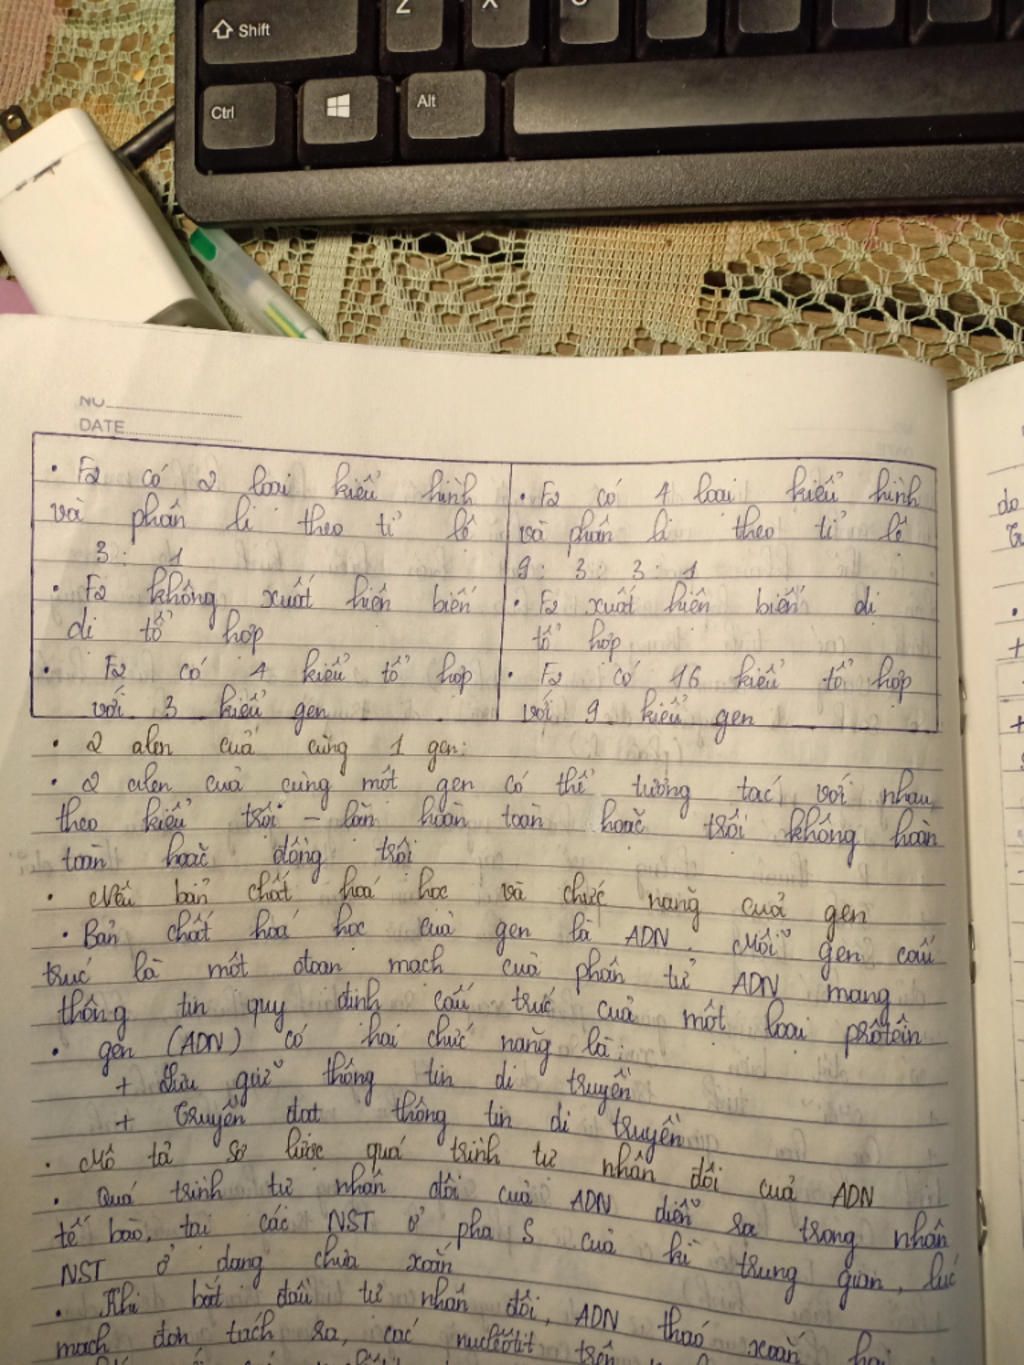 Z X C
Shift
Ctrl Alt
NO
DATE
• F2 có 2 loại kiểu hình
và phân li theo tỉ lệ
3 : 1
• F2 không xuất hiện biến
dị tổ hợp
• F2 có 4 kiểu tổ hợp
với 3 kiểu gen
• F2 có 4 loại kiểu hình
và phân li theo tỉ lệ
9 : 3 : 3 : 1
• F2 xuất hiện biến dị
tổ hợp
• F2 có 16 kiểu tổ hợp
với 9 kiểu gen
• 2 alen của cùng 1 gen:
• 2 alen của cùng một gen có thể tương tác với nhau
theo kiểu trội – lặn hoàn toàn hoặc trội không hoàn
toàn hoặc đồng trội
• Nêu bản chất hoá học và chức năng của gen
• Bản chất hoá học của gen là ADN. Mỗi gen cấu
trúc là một đoạn mạch của phân tử ADN mang
thông tin quy định cấu trúc của một loại prôtêin
• gen (ADN) có hai chức năng là:
+ Lưu giữ thông tin di truyền
+ Truyền đạt thông tin di truyền
• Mô tả sơ lược quá trình tự nhân đôi của ADN
• Quá trình tự nhân đôi của ADN diễn ra trong nhân
tế bào, tại các NST ở pha S của kì trung gian, lúc
NST ở dạng chưa xoắn
• Khi bắt đầu tự nhân đôi, ADN tháo xoắn, hai
mạch đơn tách ra, các nuclêôtit trên
do
+
+